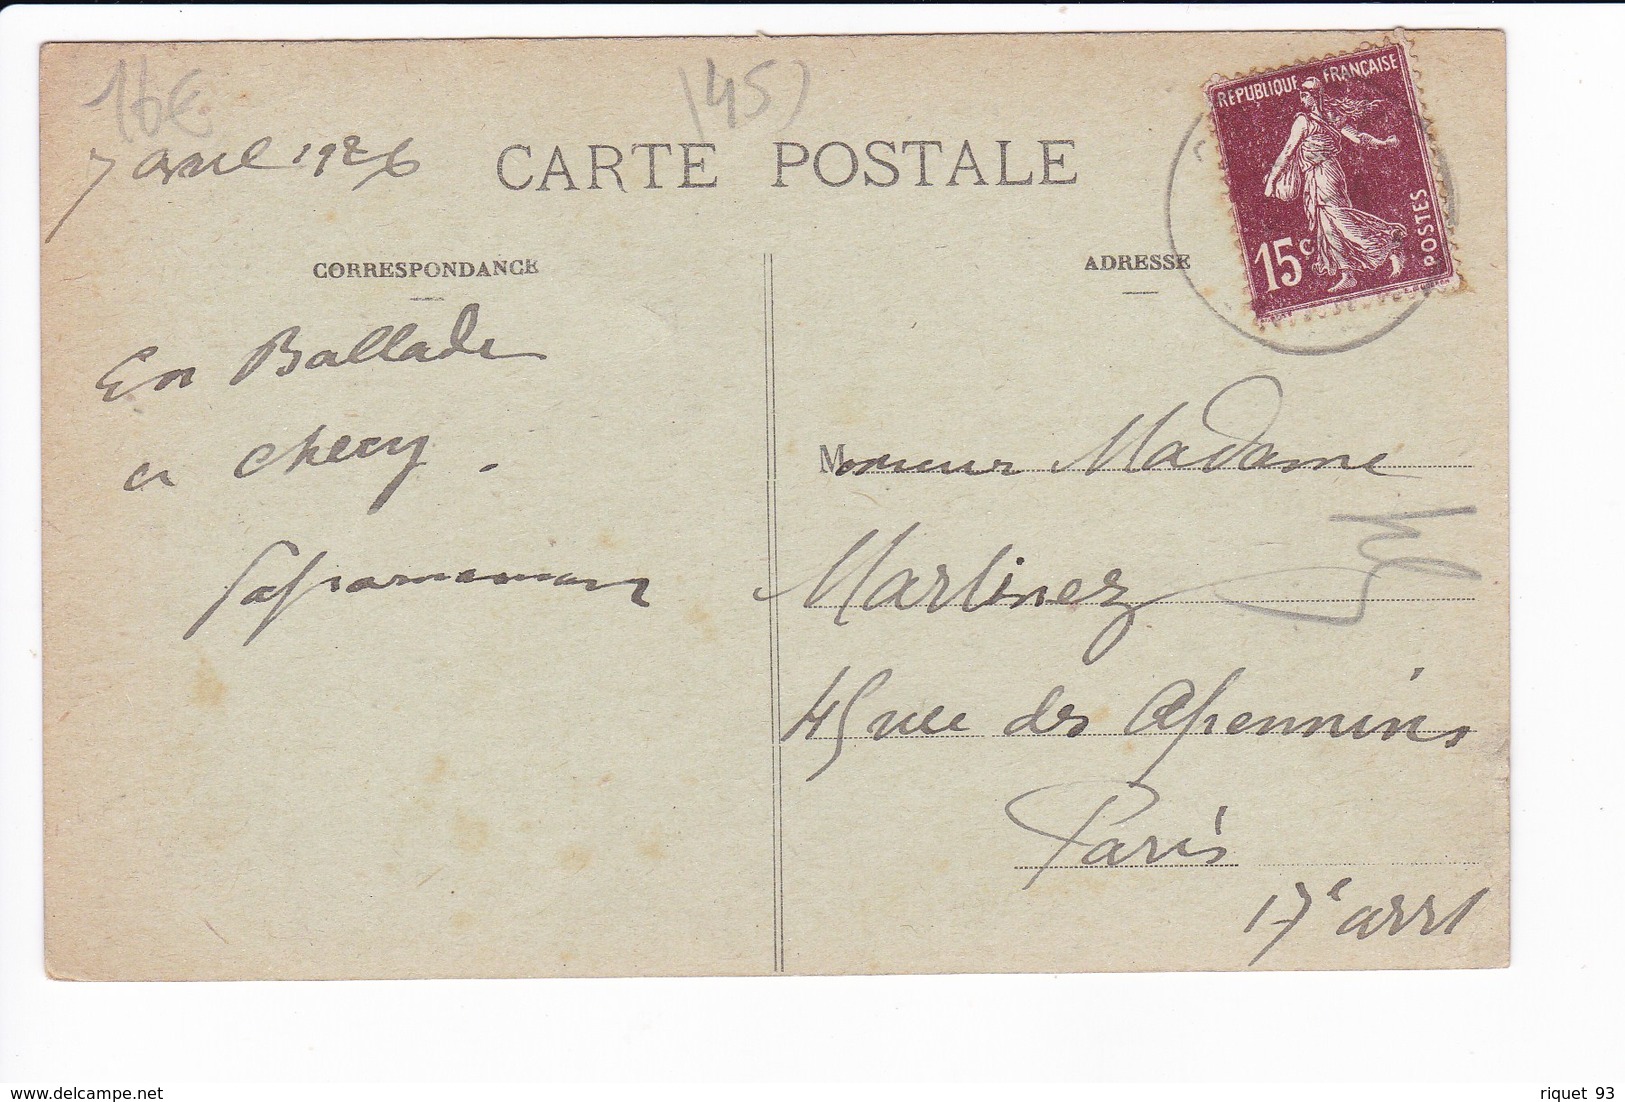 16€
(45)
7 avril 1926
CARTE POSTALE
REPUBLIQUE FRANÇAISE
15c
POSTES
CORRESPONDANCE
ADRESSE
En Ballade
a Checy.
Monsieur Madame
Martinez
45 rue des Apennins
Paris
17e arrt
delcampe.net
riquet 93